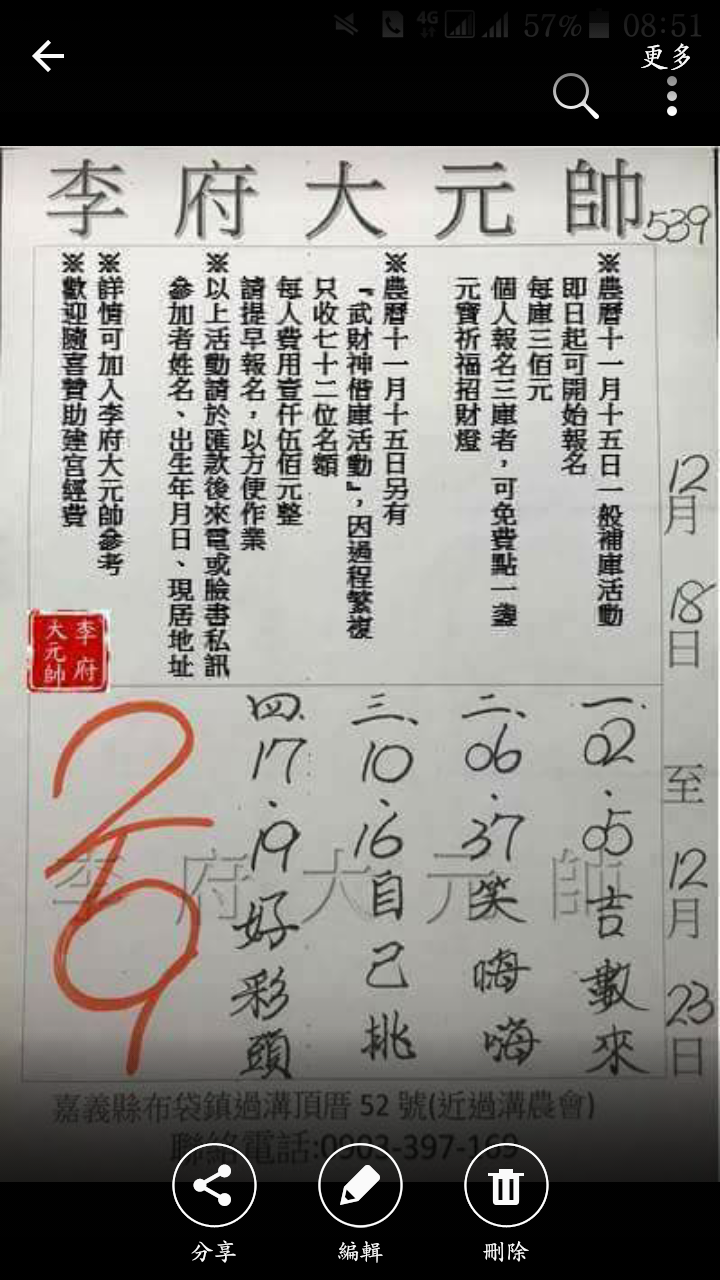 4G 57% 08:51
更多
李府大元帥
539
※農曆十一月十五日一般補庫活動
即日起可開始報名
每庫三佰元
個人報名三庫者，可免費點一盞
元寶祈福招財燈
※農曆十一月十五日另有
『武財神借庫活動』，因過程繁複
只收七十二位名額
每人費用壹仟伍佰元整
請提早報名，以方便作業
※以上活動請於匯款後來電或臉書私訊
參加者姓名、出生年月日、現居地址
※詳情可加入李府大元帥參考
※歡迎隨喜贊助建宮經費
李府
大元帥
12月18日至12月23日
一.02.05吉數來
二、06.37笑嗨嗨
三、10、16自己挑
四.17.19好彩頭
李府大元帥
嘉義縣布袋鎮過溝頂厝 52 號(近過溝農會)
聯絡電話:0903-397-169
分享
編輯
刪除